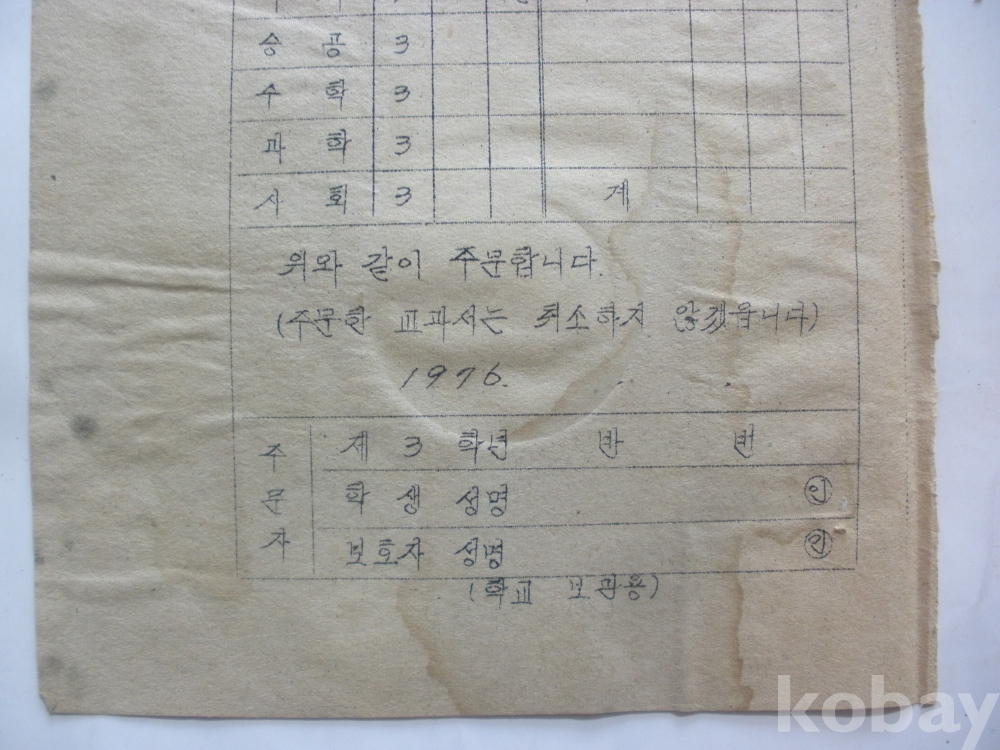 승 공 3
수 학 3
과 학 3
사 회 3 계
위와 같이 주문합니다.
(주문한 교과서는 취소하지 않겠읍니다)
1976. . .
주문자
제 3 학년 반 번
학 생 성명 인
보호자 성명 인
(학교 보관용)
kobay